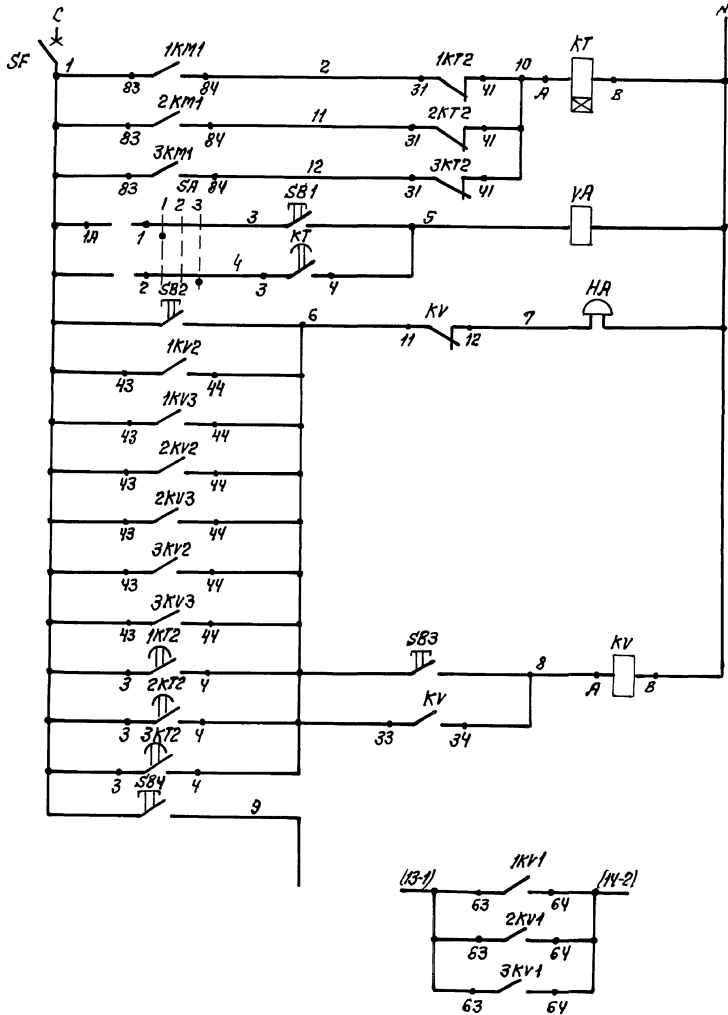 C
N
SF
1
1KM1
83
84
2
1KT2
31
41
10
A
KT
B
2KM1
83
84
11
31
2KT2
41
3KM1
83
84
12
31
3KT2
41
SA
1 2 3
1A
1
3
SB1
5
YA
2
4
3
KT
4
SB2
6
11
KV
12
7
HA
1KV2
43
44
1KV3
43
44
2KV2
43
44
2KV3
43
44
3KV2
43
44
3KV3
43
44
1KT2
3
4
SB3
8
A
KV
B
2KT2
3
4
33
KV
34
3KT2
3
4
SB4
9
(13-1)
1KV1
63
64
(14-2)
2KV1
63
64
3KV1
63
64